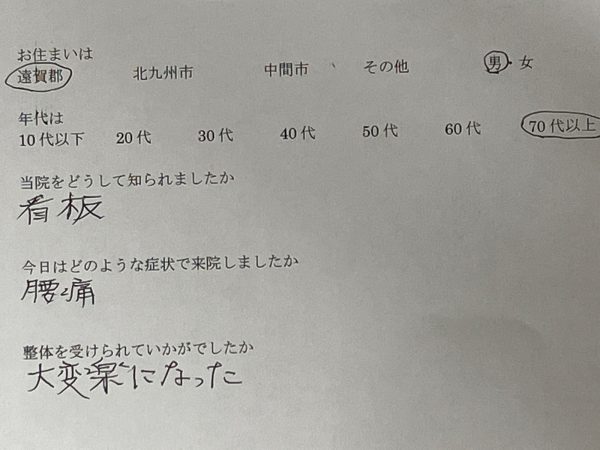 お住まいは
遠賀郡 北九州市 中間市 、 その他 男・女
年代は
10代以下 20代 30代 40代 50代 60代 70代以上
当院をどうして知られましたか
看板
今日はどのような症状で来院しましたか
腰痛
整体を受けられていかがでしたか
大変楽になった